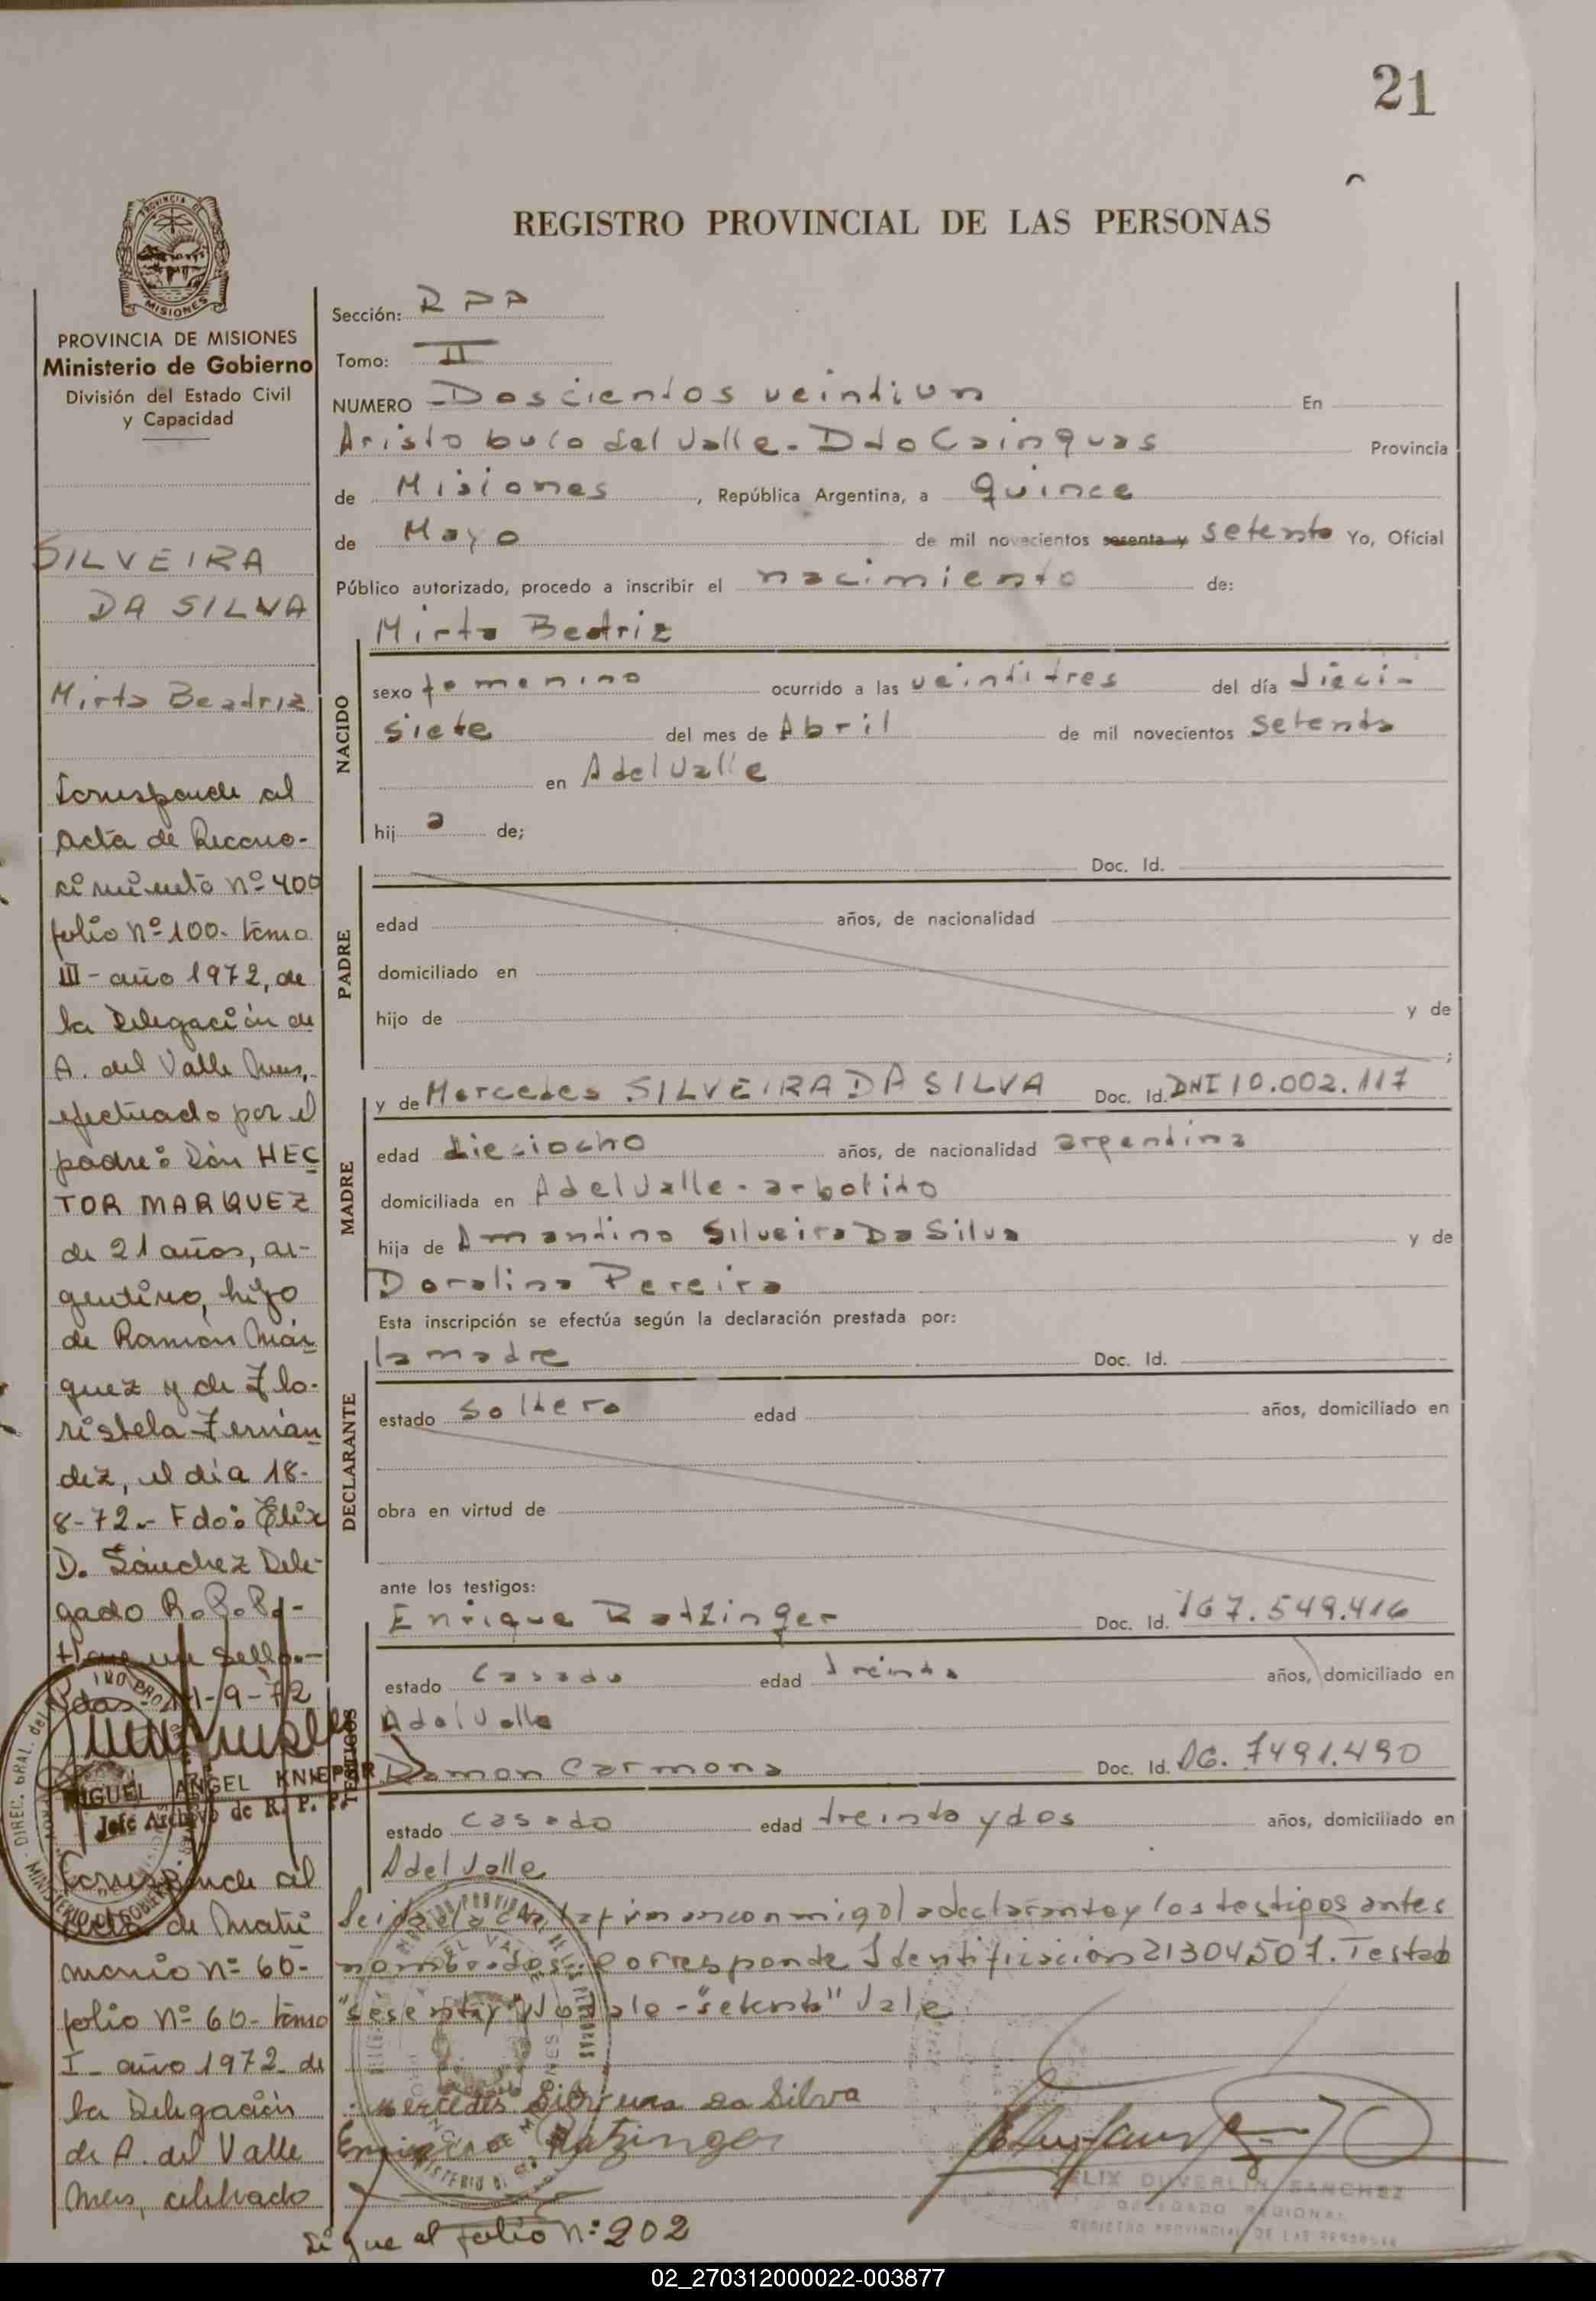 21
REGISTRO PROVINCIAL DE LAS PERSONAS
PROVINCIA DE
MISIONES
PROVINCIA DE MISIONES
Ministerio de Gobierno
División del Estado Civil
y Capacidad
SILVEIRA
DA SILVA
Mirta Beatriz
Corresponde al
acta de Recono-
cimiento nº 400
folio nº 100- tomo
III- año 1972, de
la Delegación de
A. del Valle Mnes,
efectuado por el
padre: Don HEC
TOR MARQUEZ
de 21 años, ar-
gentino, hijo
de Ramón Már
quez y de Flo-
ristela Fernán
dez, el día 18-
8-72.- Fdo: Elix
D. Sánchez Dele-
gado R.P.P.-
Hay un sello.-
Pdas- 11-9-72
MIGUEL ANGEL KNIEPER
Jefe Archivo de R. P. P.
Corresponde al
acta de Matri
monio nº 60-
folio nº 60- tomo
I- año 1972- de
la Delegación
de A. del Valle
Mnes, celebrado
Sección: RPP
Tomo: II
NUMERO Doscientos veintiun En
Aristobulo del Valle - Dto Cainguas Provincia
de Misiones, República Argentina, a quince
de Mayo de mil novecientos sesenta y setenta Yo, Oficial
Público autorizado, procedo a inscribir el nacimiento de:
Mirta Beatriz
NACIDO
sexo femenino ocurrido a las veintitres del día dieci-
siete del mes de Abril de mil novecientos setenta
en A del Valle
hij a de;
PADRE
Doc. Id.
edad años, de nacionalidad
domiciliado en
hijo de y de
;
MADRE
y de Mercedes SILVEIRA DA SILVA Doc. Id. DNI 10.002.117
edad dieciocho años, de nacionalidad argentina
domiciliada en A del Valle - arbolito
hija de Amandino Silveira Da Silva y de
Doralina Pereira
Esta inscripción se efectúa según la declaración prestada por:
DECLARANTE
la madre Doc. Id.
estado soltera edad años, domiciliado en
obra en virtud de
ante los testigos:
TESTIGOS
Enrique Ratzinger Doc. Id. 7.549.416
estado casado edad treinta años, domiciliado en
A del Valle
Ramon Carmona Doc. Id. 7491.490
estado casado edad treinta y dos años, domiciliado en
A del Valle
Leida el acta la firman conmigo la declarante y los testigos antes
nombrados. Corresponde Identificación 21304507. Testado
"sesenta y" No Vale - "setenta" Vale
Mercedes da Silva
Enrique Ratzinger
ELIX DUVERLIN SANCHEZ
DELEGADO REGIONAL
REGISTRO PROVINCIAL DE LAS PERSONAS
Sigue al folio nº 202
02_270312000022-003877